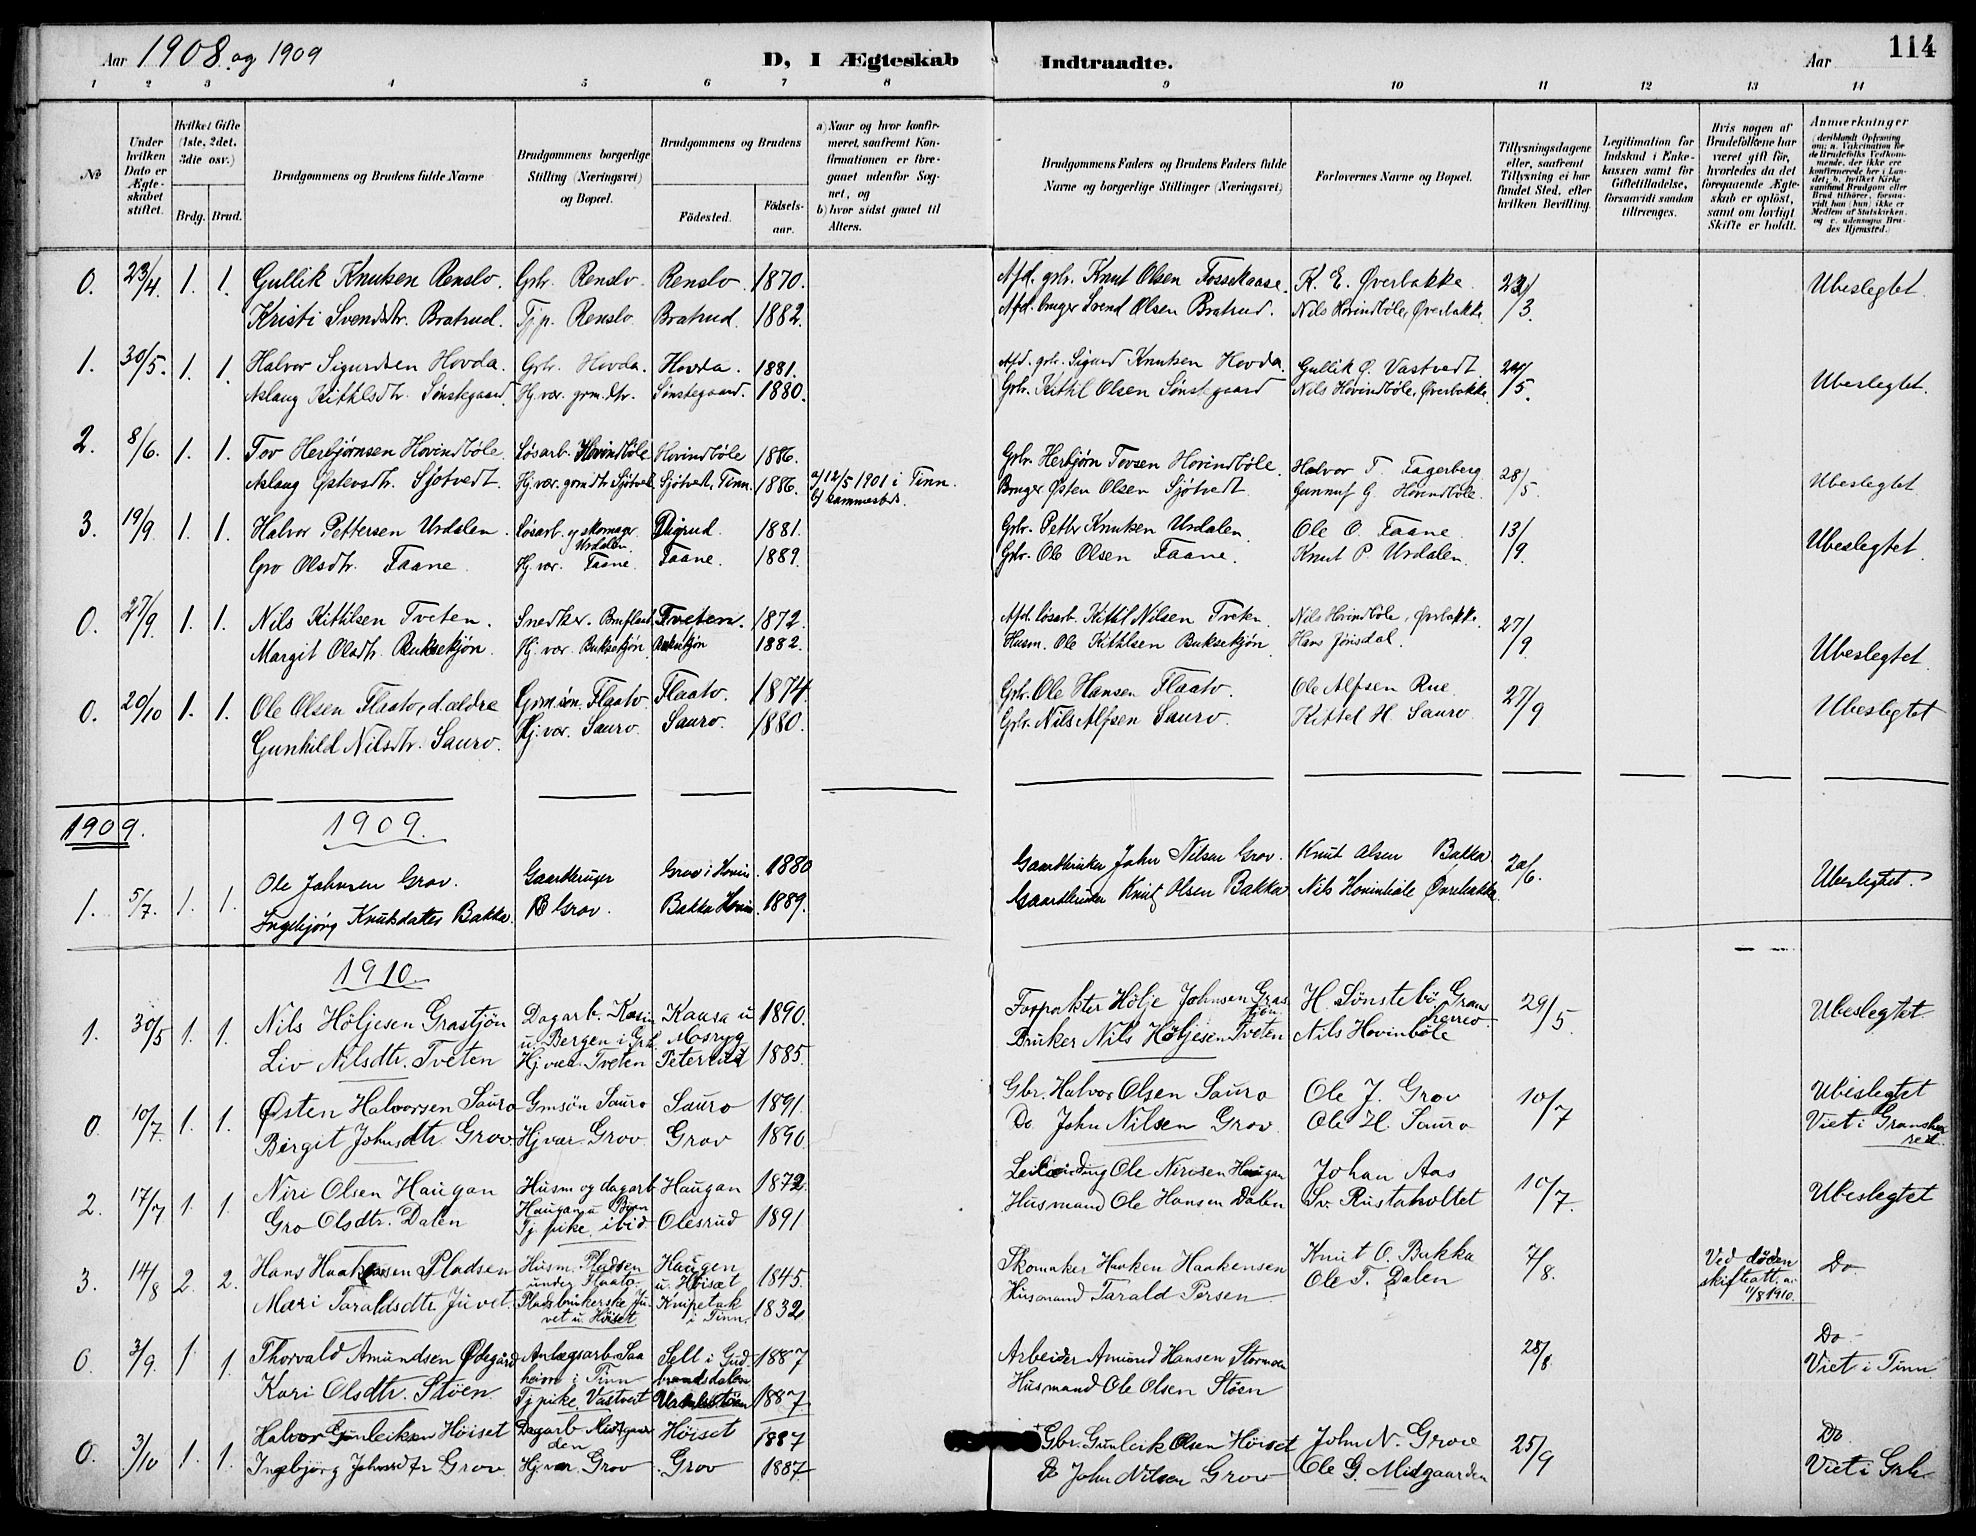 Aar 1908 og 1909
D, I Ægteskab Indtraadte.
Aar
114
1 2 3 4 5 6 7 8 9 10 11 12 13 14
No
Under hvilken Dato er Ægteskabet stiftet.
Hvilket Gifte (1ste, 2det, 3die osv.)
Brdg. Brud.
Brudgommens og Brudens fulde Navne
Brudgommens borgerlige Stilling (Næringsvei) og Bopæl.
Brudgommens og Brudens
Fødested.
Fødselsaar.
a) Naar og hvor konfirmeret, saafremt Konfirmationen er foregaaet udenfor Sognet, og
b) hvor sidst gaaet til Alters.
Brudgommens Faders og Brudens Faders fulde Navne og borgerlige Stillinger (Næringsvei)
Forlovernes Navne og Bopæl.
Tillysningsdagene eller, saafremt Tillysning ei har fundet Sted, efter hvilken Bevilling.
Legitimation for Indskud i Enkekassen samt for Giftetilladelse, forsaavidt saadan tiltrænges.
Hvis nogen af Brudefolkene har været gift før, hvorledes da det foregaaende Ægteskab er opløst, samt om lovligt Skifte er holdt.
Anmærkninger
0. 23/4. 1. 1. Gullik Knutsen Renslo. Gbr. Renslo. Renslo 1870. Afd. gbr. Knut Olsen Fossekaase. K. E. Øverbakke. Ubeslegtet
Kristi Svendsdtr. Bratrud. Tj.p. Renslo. Bratrud. 1882. Afd. bruger Svend Olsen Bratrud. Nils Hovindbøle, Øverbakke. /3.
1. 30/5. 1. 1. Halvor Sigurdsen Hovda. Gbr. Hovda. Hovda. 1881. Afd. gbr. Sigurd Knutsen Hovda Gullik Ø. Vastvedt Ubeslegtet.
Aslaug Kittilsdtr. Sønstegaard. Hj. vær. grm.dtr. Sønstegaard. 1880. Gbr. Kittil Olsen Sønstegaard Nils Hovindbøle, Øverbakke. /5.
2. 8/6. 1. 1. Tov Herbjørnsen Hovindbøle. Løsarb. Hovindbøle Hovindbøle 1886. Gbr. Herbjørn Tovsen Hovindbøle. Halvor T. Fagerberg 28/5. Ubeslegtet
Aslaug Østensdtr. Sjøtvedt. Hj. vær. grmdtr Sjøtvedt Sjøtvedt, Tinn. 1886. a/ 12/5 1901 i Tinn. b/ sammesteds. Bruger Østen Olsen Sjøtvedt. Gunnuf G. Hovindbøle.
3. 19/9. 1. 1. Halvor Pettersen Urdalen. Løsarb. og skomager Urdalen. 1881. Gbr. Petter Knutsen Urdalen. Ole O. Faane. 13/9. Ubeslegtet.
Gro Olsdtr. Faane. Hj. vær. Faane. Faane. 1889. Gbr. Ole Olsen Faane. Knut P. Urdalen.
0. 27/9. 1. 1. Nils Kittilsen Tveten. Snedker. Tveten. 1872. Afd. løsarb. Kittil Nilsen Tveten Nils Hovindbøle, Øverbakke. 27/9 Ubeslegtet
Margit Olsdtr. Buksekjøn. Hj. vær. Buksekjøn. Buksekjøn 1882. Husm. Ole Kittilsen Buksekjøn. Hans Jønsdal.
0. 20/10 1. 1. Ole Olsen Flaato, d. ældre Grm.søn. Flaato. Flaato. 1874. Gbr. Ole Hansen Flaato. Ole Alfsen Rue. 27/9 Ubeslegtet
Gunhild Nilsdtr. Sauro. Hj. vær. Sauro. Sauro. 1880. Gbr. Nils Alfsen Sauro. Kittel H. Sauro
1909. 1909.
1. 5/7. 1. 1. Ole Johnsen Grov. Gaardbruger Grov i Hovin. 1880 Gaardbruker John Nilsen Grov. Knut Olsen Bakka 20/6. Ubeslegtet.
Ingebjørg Knutsdatter Bakka. Grov. Bakka Hovin. 1889. Gaardbruker Knut Olsen Bakka Nils Hovinbøle Øverbakka.
1910.
1. 30/5 1. 1. Nils Høljesen Grastjøn Dagarb. u. Bergen i Grh. Kaasa u Mosryg 1890. Forpakter Hølje Johnsen Grastjøn. H. Sønstebø Gransherred. 29/5. Ubeslegtet.
Liv Nilsdtr. Tveten Hj. vær. Tveten Peterrud 1885. Bruker Nils Høljesen Tveten Nils Hovinbøle
0. 10/7. 1. 1. Østen Halvorsen Sauro Gmsøn Sauro Sauro 1891. Gbr. Halvor Olsen Sauro Ole J. Grov 10/7 Ubeslegtet
Birgit Johnsdtr. Grov Hj vær. Grov. Grov 1890. Do. John Nilsen Grov. Ole H. Sauro Viet i Gransherred.
2. 17/7 1. 1. Niri Olsen Haugan Husm og dagarb Haugan 1872. Leilænding Ole Nirisen Haugan Johan Aas 10/7. Ubeslegtet
Gro Olsdtr. Dalen Tj. pike ibid. Olesrud 1891 Husmand Ole Hansen Dalen Sv. Rustaholtet
3. 14/8 2. 2. Hans Haakensen Pladsen Husm. Pladsen under Flaato Haugen u. Høiset 1845. Skomaker Haaken Haakensen Knut O. Bakka 7/8. Ved døden skifteatt. av 11/8 1910. Do.
Mari Taraldsdtr. Juvet. Pladsbrukerske Juvet u. Høiset Knipetak i Tinn. 1832 Husmand Tarald Persen Ole T. Dalen
0. 3/9. 1. 1. Thorvald Amundsen Ødegård Anlægsarb. Saaheim i Tinn Sell i Gudbrandsdalen 1887 Arbeider Amund Hansen Stormoen 28/8 Do.
Kari Olsdtr. Støen Tj pike. Vastveit 1887. Husmand Ole Olsen Støen Viet i Tinn
0. 3/10 1. 1. Halvor Gunleiksen Høiset Dagarb Midtgaarden Høiset 1887 Gbr. Gunleik Olsen Høiset John N. Grov 25/9 Do.
Ingebjørg Johnsdtr Grov. Hj. vær Grov Grov 1887 Do John Nilsen Grov Ole G. Midgaarden Viet i Grh.